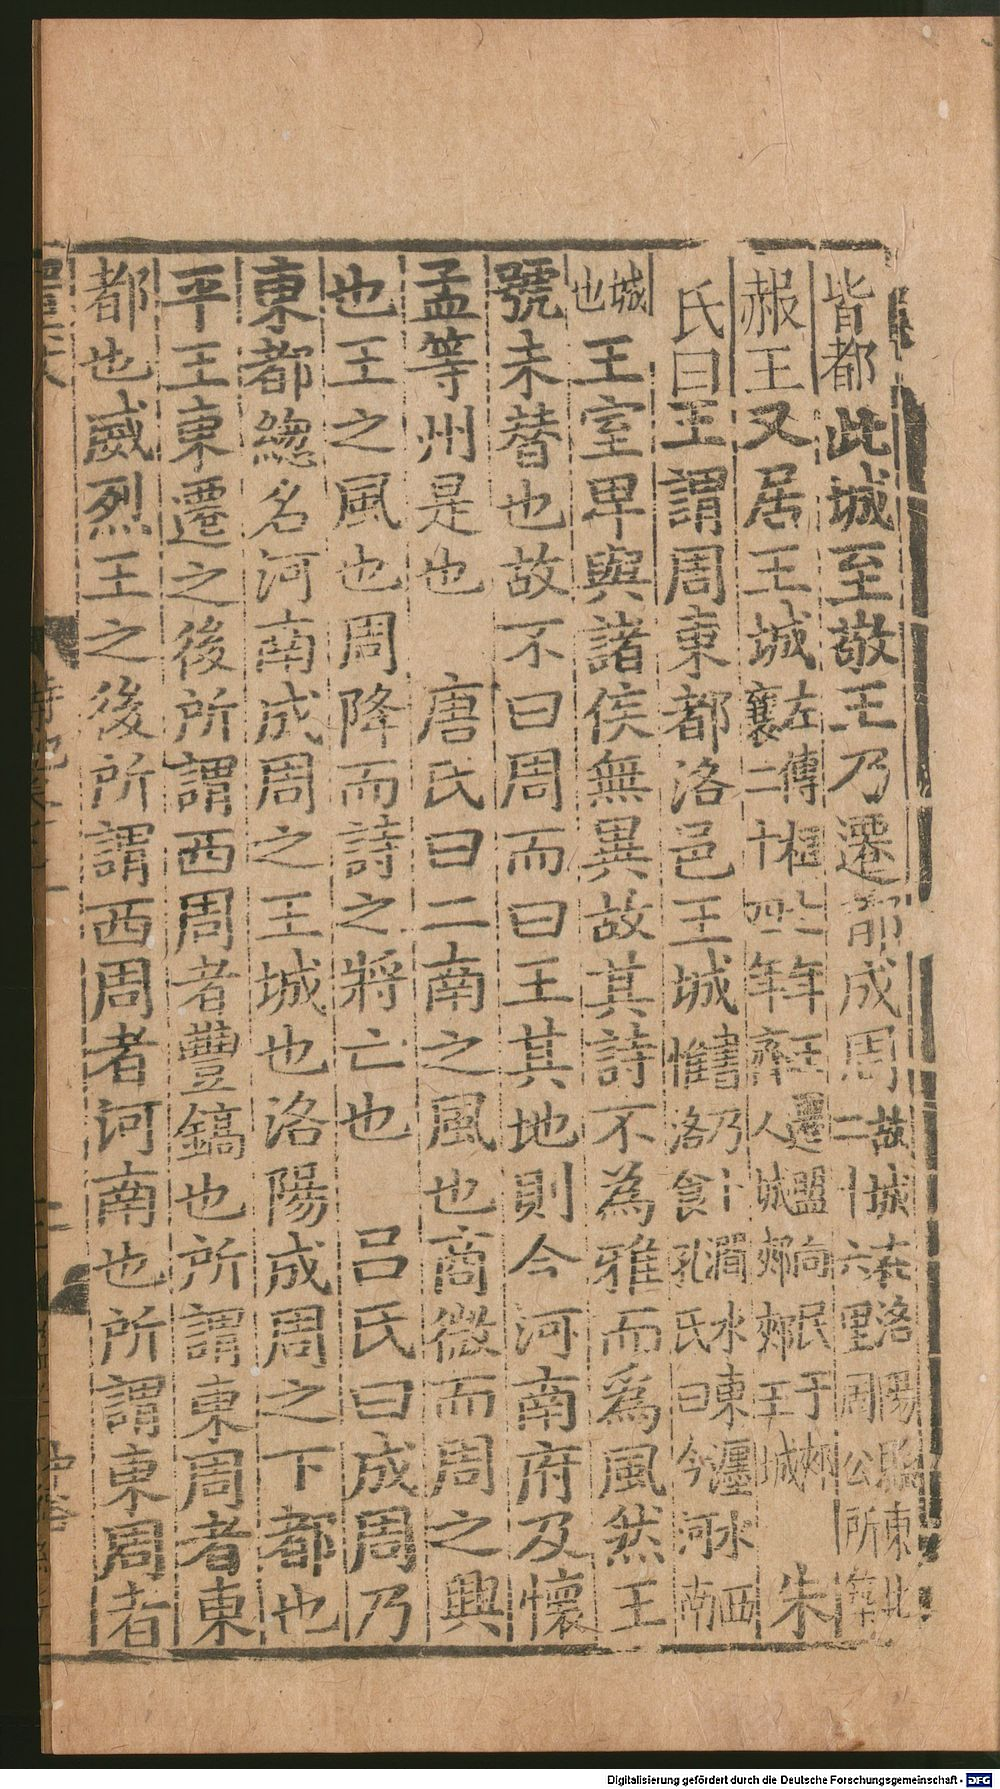 皆都此城至敬王乃遷都成周故城在洛陽縣東北二十六里周公所築
赧王又居王城左傳襄二十四年齊人城郟 朱
氏曰王謂周東都洛邑王城書乃卜澗水東瀍水西惟洛食孔氏曰今河南
城也王室卑與諸侯無異故其詩不為雅而為風然王
號未替也故不曰周而曰王其地則今河南府及懷
孟等州是也 唐氏曰二南之風也商微而周之興
也王之風也周降而詩之將亡也 呂氏曰成周乃
東都總名河南成周之王城也洛陽成周之下都也
平王東遷之後所謂西周者豐鎬也所謂東周者東
都也威烈王之後所謂西周者河南也所謂東周者
Digitalisierung gefördert durch die Deutsche Forschungsgemeinschaft - DFG